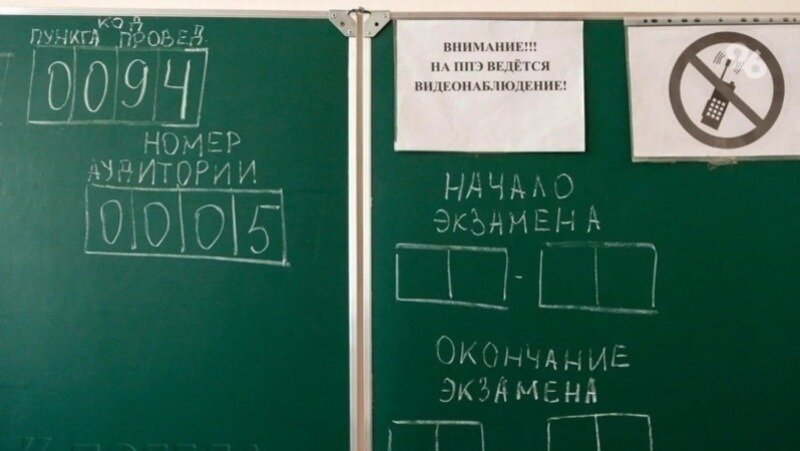 КОД
ПУНКТА ПРОВЕД.
0094
НОМЕР
АУДИТОРИИ
0005
ВНИМАНИЕ!!!
НА ППЭ ВЕДЁТСЯ
ВИДЕОНАБЛЮДЕНИЕ!
НАЧАЛО
ЭКЗАМЕНА
-
ОКОНЧАНИЕ
ЭКЗАМЕНА